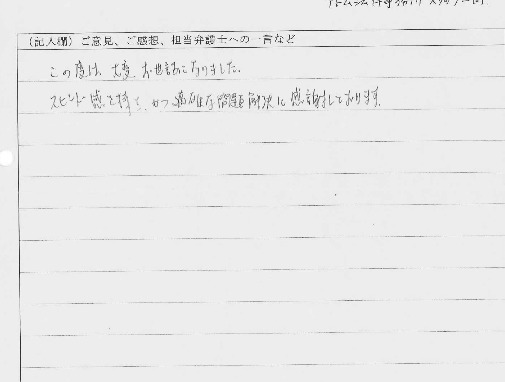 (記入欄)ご意見、ご感想、担当弁護士への一言など
この度は、大変、お世話になりました。
スピード感を持って、かつ適確な問題解決に感謝しております。